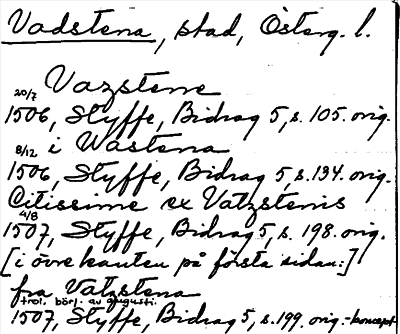 Vadstena, stad, Österg. l.
Vazstene
20/7
1506, Styffe, Bidrag 5, s. 105. orig.
i Wastena
8/12
1506, Styffe, Bidrag 5, s. 134. orig.
Citissime ex Vatzstenis
4/8
1507, Styffe, Bidrag 5, s. 198. orig.
[i övre kanten på första sidan:]
fra Vatzstena
trol. börj. av augusti.
1507, Styffe, Bidrag 5, s. 199. orig.-koncept.